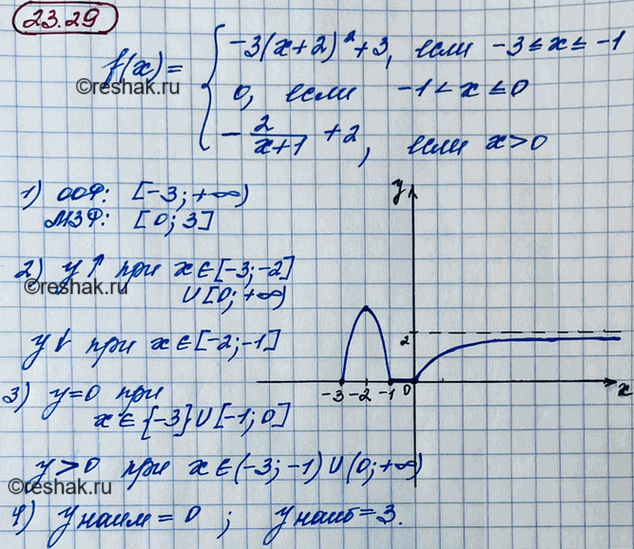 23.29
-3(x+2)²+3, если -3≤x≤-1
f(x)= { 0, если -1<x≤0
©reshak.ru
-2/(x+1) +2, если x>0
1) ООФ: [-3;+∞)
МЗФ: [0;3]
2) y↑ при x∈[-3;-2]
∪[0;+∞)
©reshak.ru
y↓ при x∈[-2;-1]
3) y=0 при
x∈{-3}∪[-1;0]
y>0 при x∈(-3;-1)∪(0;+∞)
©reshak.ru
4) yнаим=0 ; yнаиб=3.
y
2
-3 -2 -1 0 x